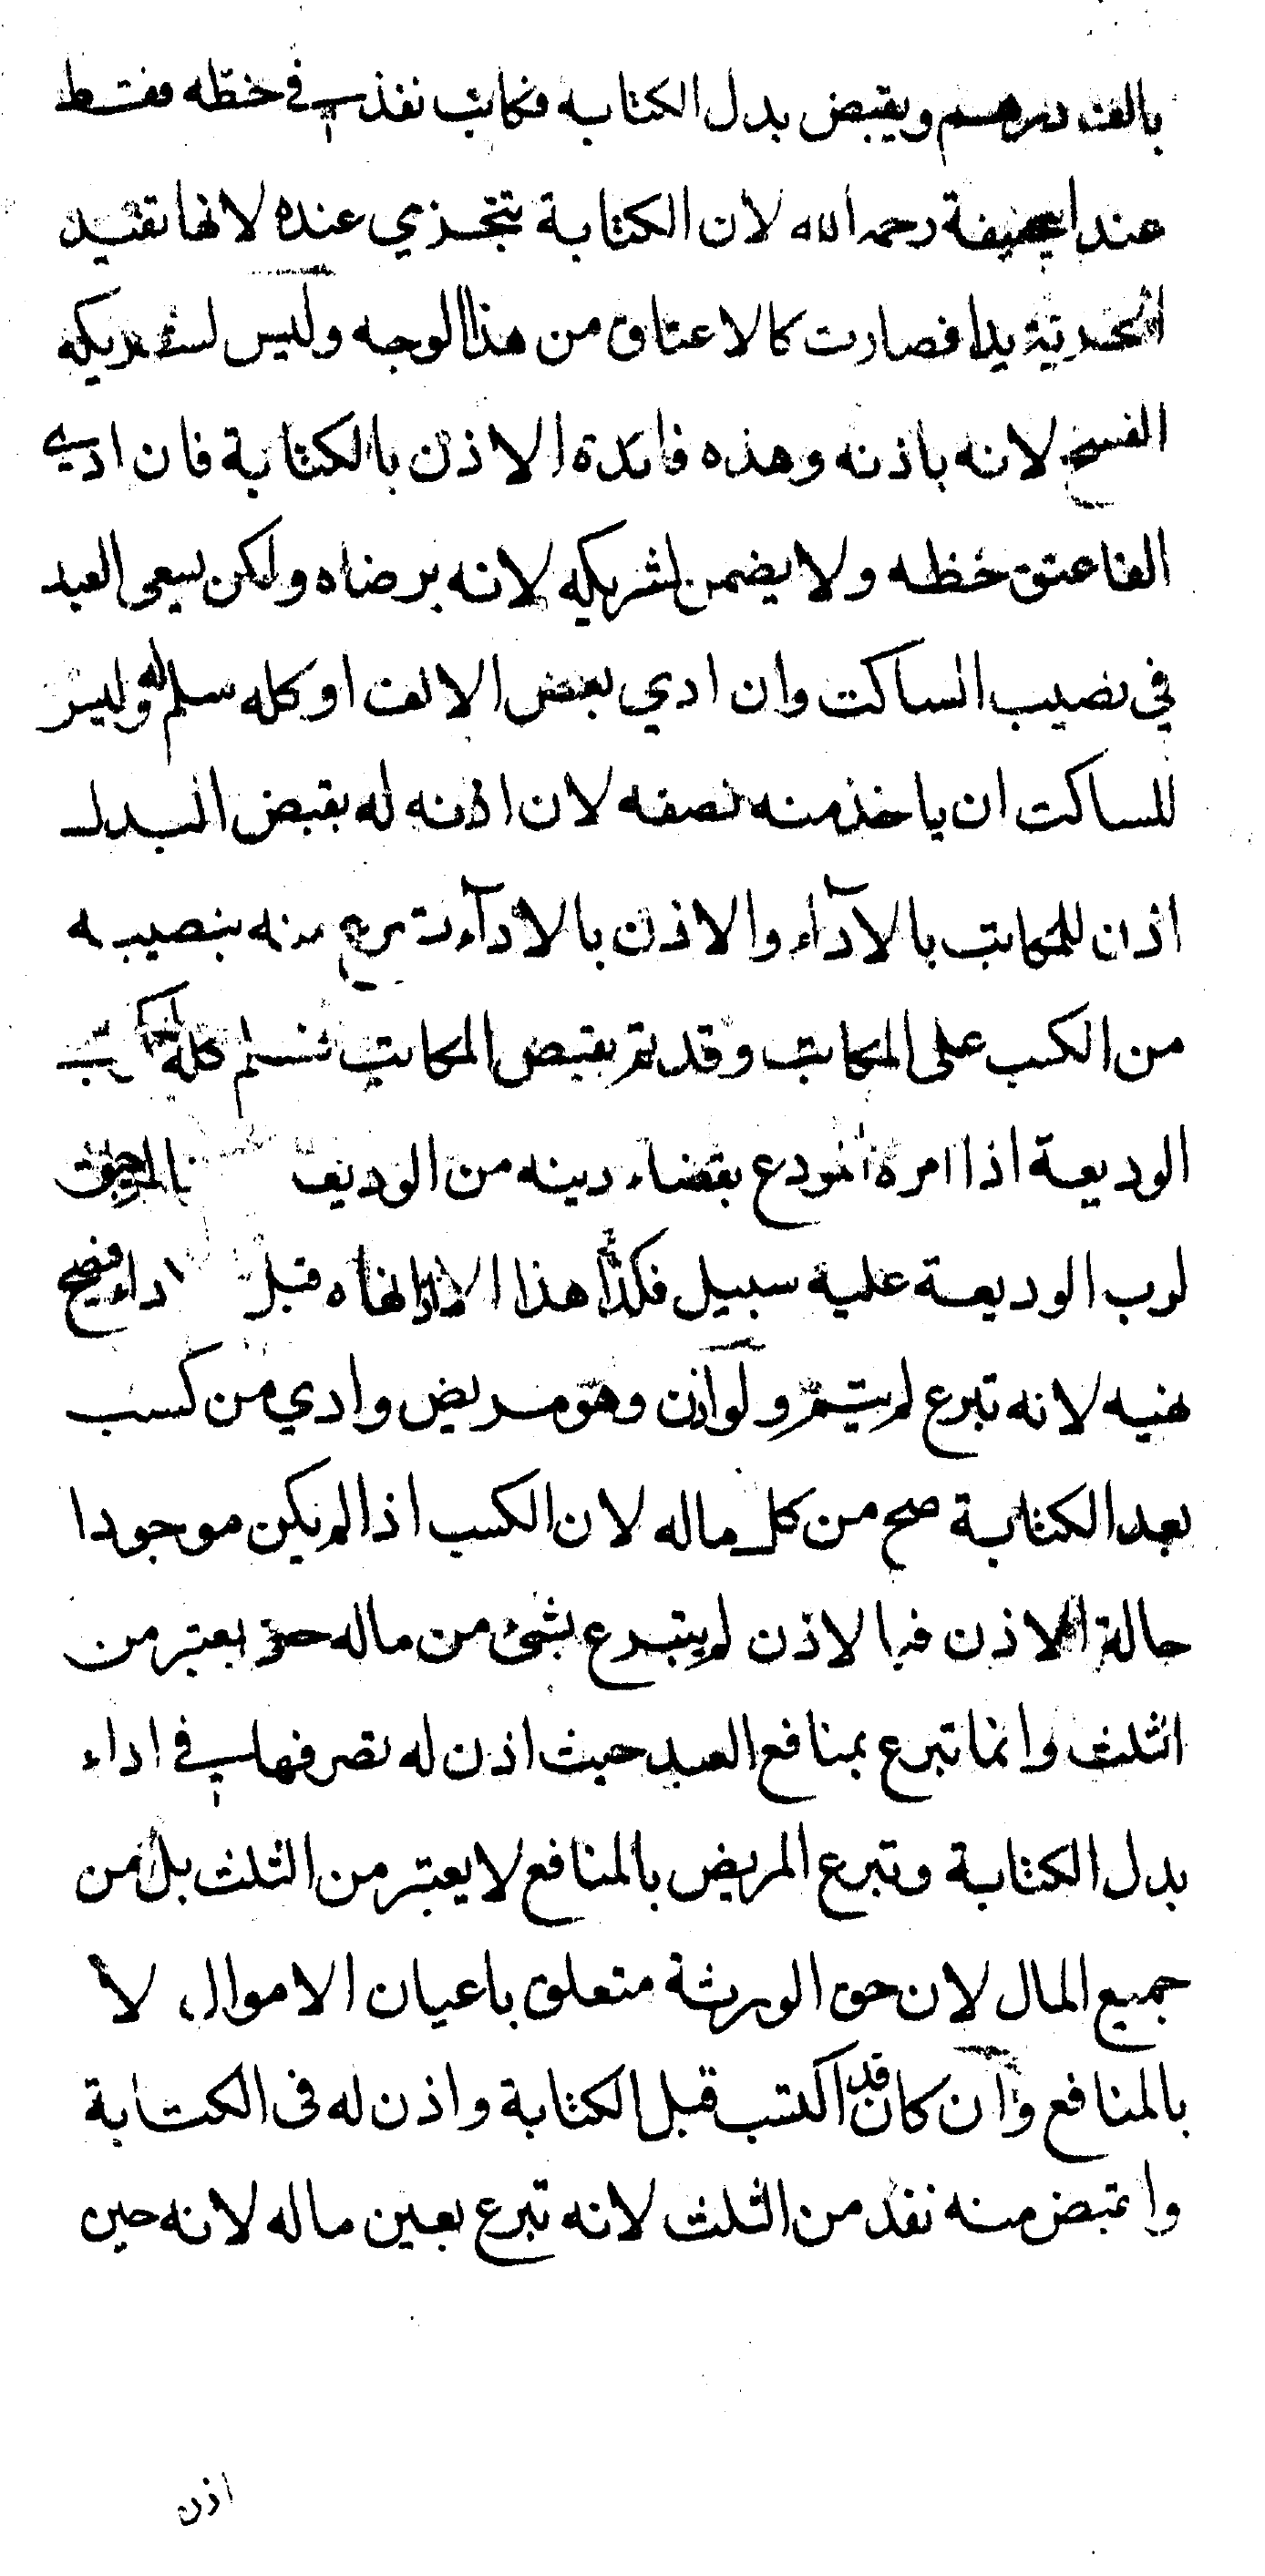 بالف درهم ويقبض بدل الكتابه فكاتب نفذ في حظه فقط
عند ابي حنيفة رحمه الله لان الكتابة تتجزي عنده لانها تفيد
الحرية يدا فصارت كالاعتاق من هذا الوجه وليس لشريكه
الفسخ لانه باذنه وهذه فائدة الاذن بالكتابة فان ادي
الفا عتق حظه ولا يضمن لشريكه لانه برضاه ولكن يسعي العبد
في نصيب الساكت وان ادي بعض الالف او كله سلم له وليس
للساكت ان ياخذ منه نصفه لان اذنه له بقبض البدل
اذن للمكاتب بالآداء والاذن بالادآء تبرع منه بنصيبه
من الكسب علي المكاتب وقد تم بقبض المكاتب فسلم كله
الوديعة اذا امره المودع بقضاء دينه من الوديعه
لرب الوديعة عليه سبيل فكذا هذا الا اذا نهاه قبل الاداء فيصح
نهيه لانه تبرع لم يتم ولو اذن وهو مريض وادي من كسب
بعد الكتابة صح من كل ماله لان الكسب اذا لم يكن موجودا
حالة الاذن فبالاذن لم يتبرع بشئ من ماله حتي يعتبر من
الثلث وانما تبرع بمنافع العبد حيث اذن له بصرفها في اداء
بدل الكتابة وتبرع المريض بالمنافع لا يعتبر من الثلث بل من
جميع المال لان حق الورثة متعلق باعيان الاموال لا
بالمنافع وان كان قد اكتسب قبل الكتابة واذن له في الكتابة
والقبض منه نفذ من الثلث لانه تبرع بعين ماله لانه حين
اذن